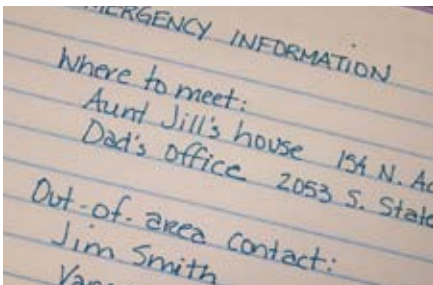 EMERGENCY INFORMATION
Where to meet:
Aunt Jill's house 154 N.
Dad's Office 2053 S. State
Out-of-area contact:
Jim Smith